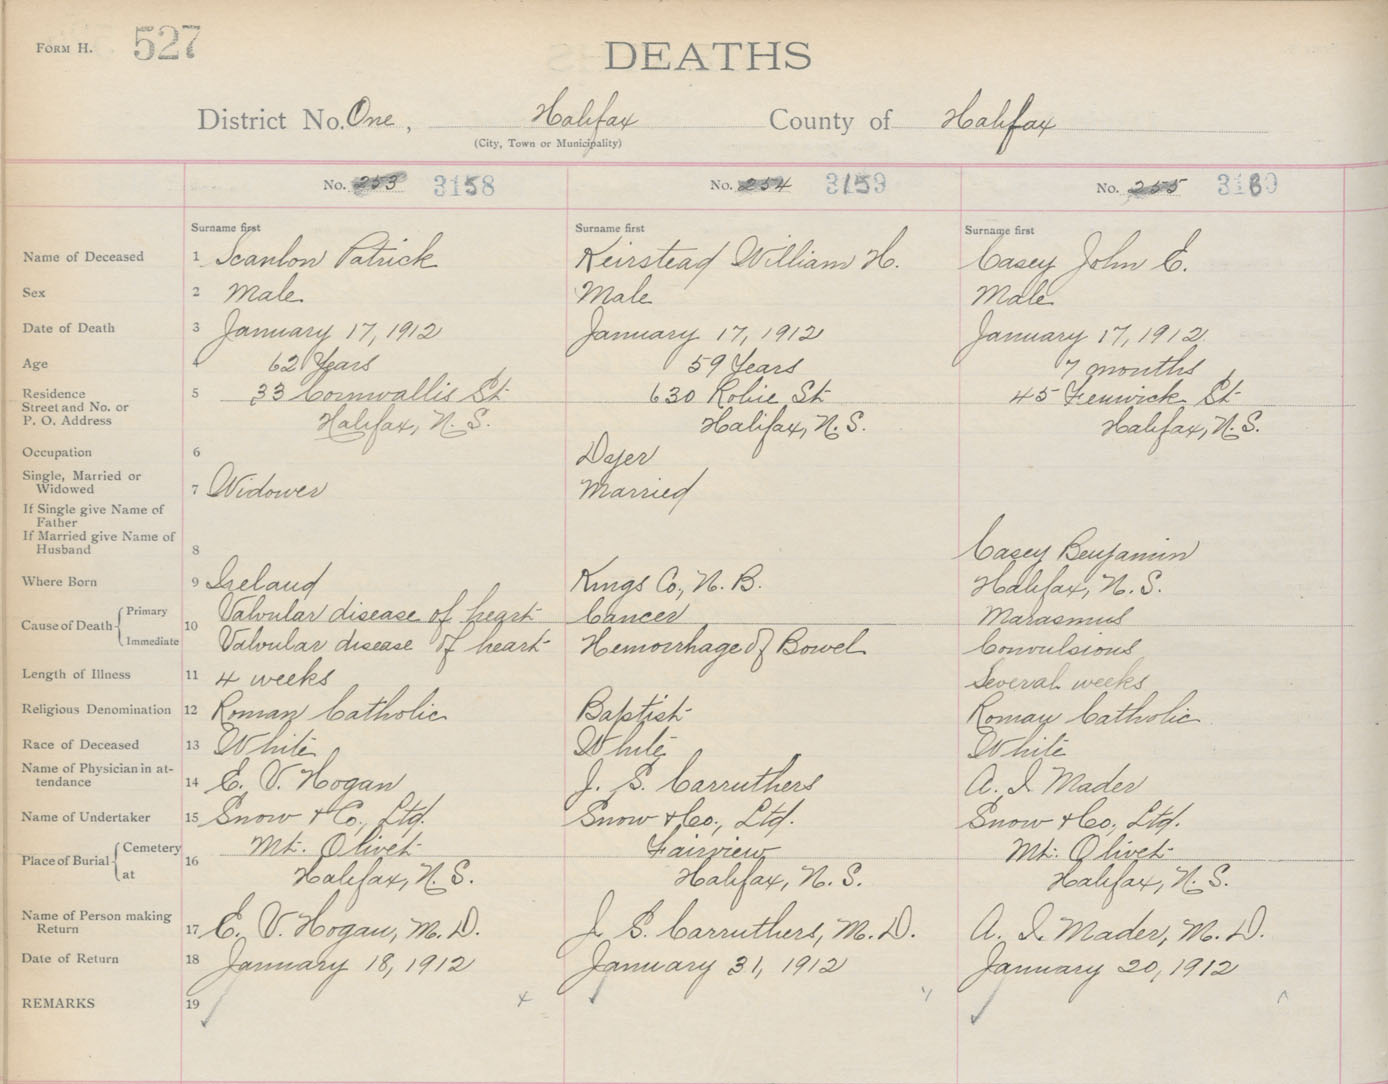 FORM H. 527
DEATHS
District No. One, Halifax County of Halifax
(City, Town or Municipality)
No. 253 3158 No. 254 3159 No. 255 3160
Surname first Surname first Surname first
Name of Deceased 1 Scanlon Patrick Keirstead William H. Casey John E.
Sex 2 Male Male Male
Date of Death 3 January 17, 1912 January 17, 1912 January 17, 1912
Age 4 62 Years 59 Years 7 months
Residence 5 33 Cornwallis St 630 Robie St 45 Fenwick St
Street and No. or
P. O. Address Halifax, N. S. Halifax, N. S. Halifax, N. S.
Occupation 6 Dyer
Single, Married or
Widowed 7 Widower Married
If Single give Name of
Father
If Married give Name of
Husband 8 Casey Benjamin
Where Born 9 Ireland Kings Co., N. B. Halifax, N. S.
Cause of Death Primary 10 Valvular disease of heart Cancer Marasmus
Immediate Valvular disease of heart Hemorrhage of Bowel Convulsions
Length of Illness 11 4 weeks Several weeks
Religious Denomination 12 Roman Catholic Baptist Roman Catholic
Race of Deceased 13 White White White
Name of Physician in at-
tendance 14 E. V. Hogan J. S. Carruthers A. I. Mader
Name of Undertaker 15 Snow & Co., Ltd. Snow & Co., Ltd. Snow & Co., Ltd.
Place of Burial Cemetery 16 Mt. Olivet Fairview Mt. Olivet
at Halifax, N. S. Halifax, N. S. Halifax, N. S.
Name of Person making
Return 17 E. V. Hogan, M. D. J. S. Carruthers, M. D. A. I. Mader, M. D.
Date of Return 18 January 18, 1912 January 31, 1912 January 20, 1912
REMARKS 19